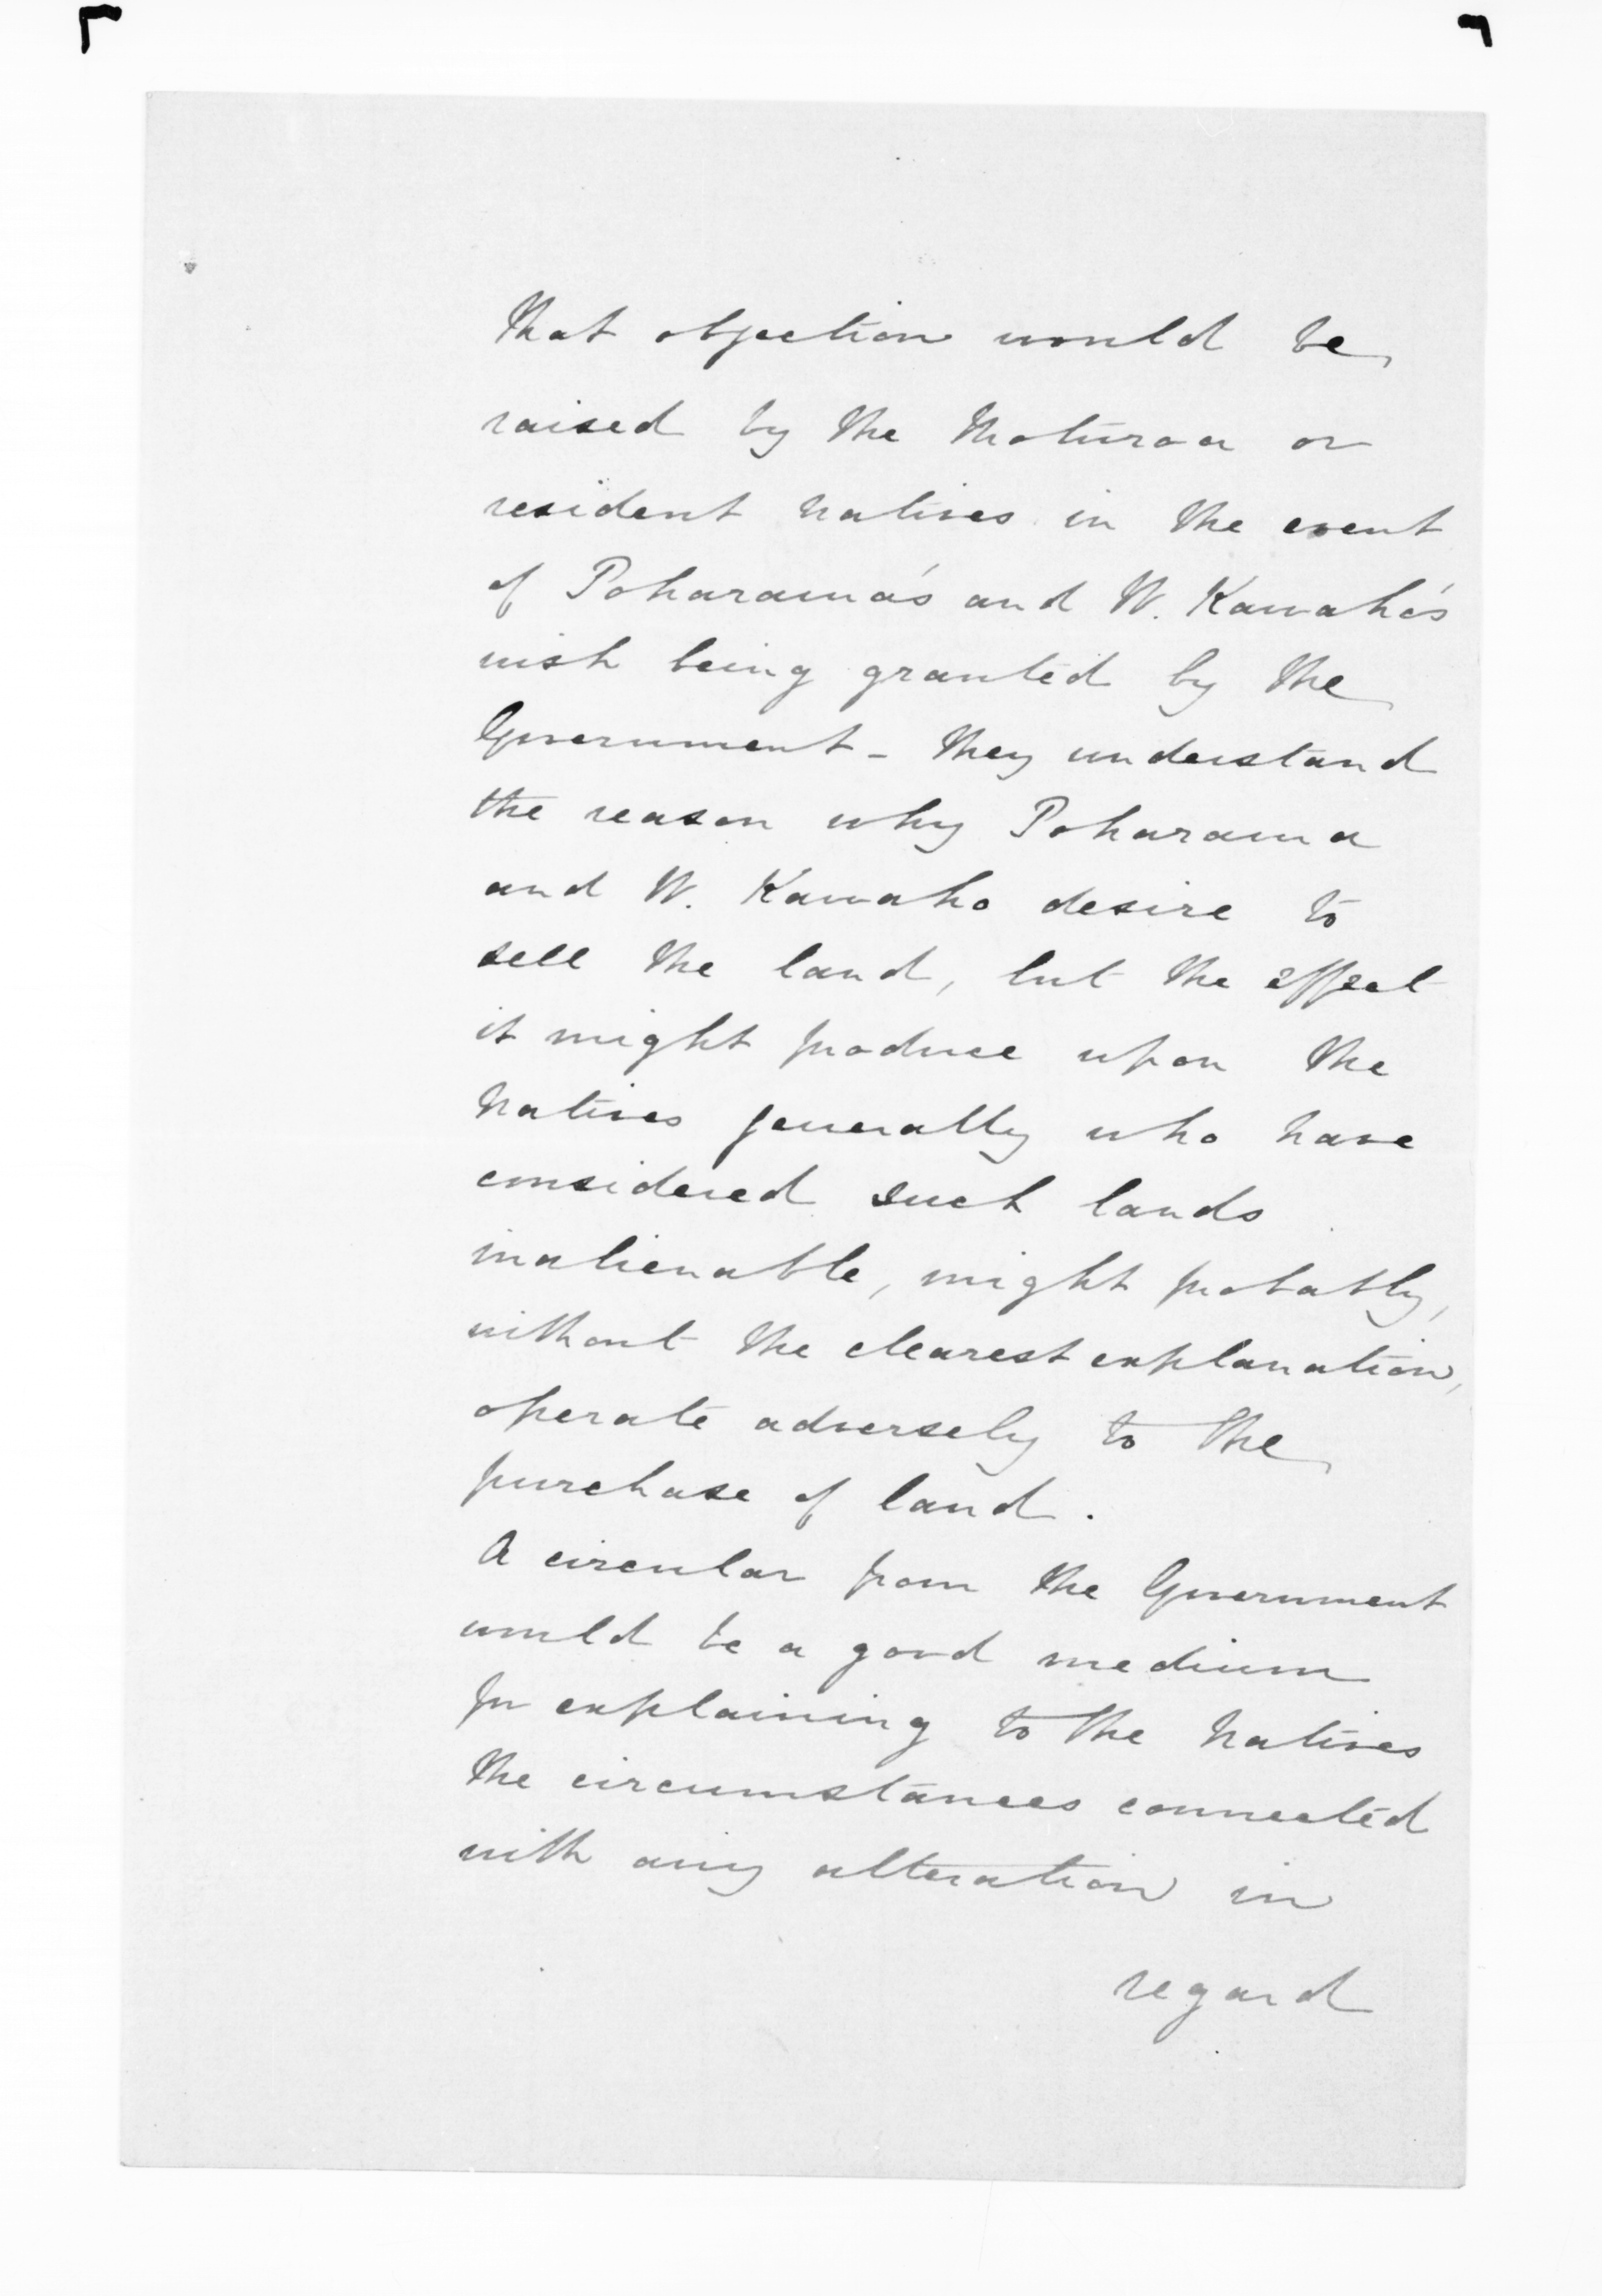 that objection would be
raised by the Moturoa or
resident natives in the event
of Poharama's and W. Kawaho's
wish being granted by the
Government - they understand
the reason why Poharama
and W. Kawaho desire to
sell the land, but the effect
it might produce upon the
Natives generally who have
considered such lands
inalienable, might probably,
without the clearest explanation,
operate adversely to the
purchase of land.
A circular from the Government
would be a good medium
for explaining to the Natives
the circumstances connected
with any alteration in
regard